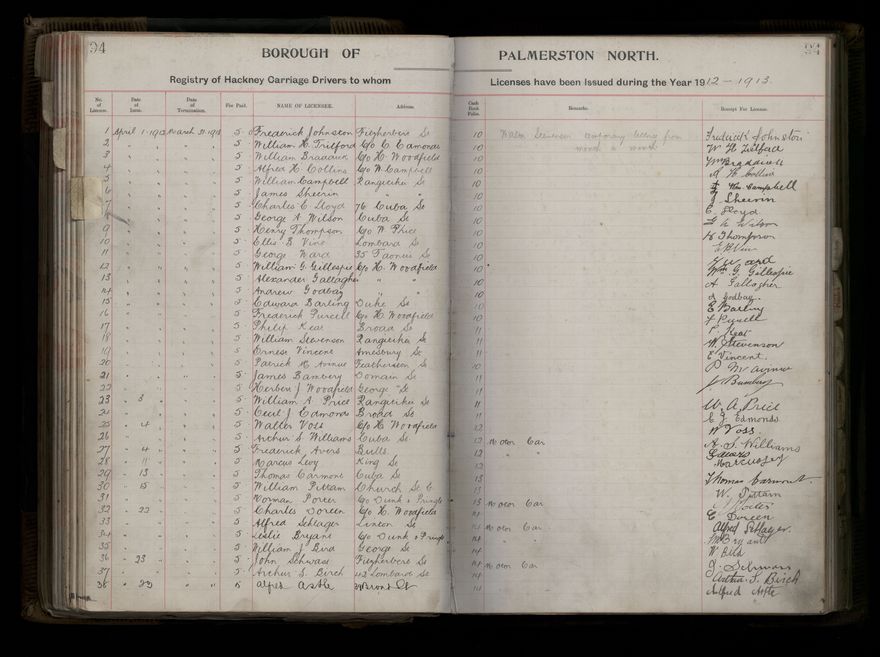 94
94
BOROUGH OF PALMERSTON NORTH.
Registry of Hackney Carriage Drivers to whom Licenses have been Issued during the Year 1912-1913.
No. of License. Date of Issue. Date of Termination. Fee Paid. NAME OF LICENSEE. Address. Cash Book Folio. Remarks. Receipt For License.
1 April 1. 1912 March 31. 1913 5. Frederick Johnston Fitzherbert St 10 temporary license from Frederick Johnston
2 " " 5. William H. Titford C/o C. Edmonds 10 month to month W H Titford
3 " " 5. William Braddick C/o H. Woodfield 10 Wm Braddick
4 " " 5. Alfred H Collins C/o W. Campbell 10 A H Collins
5 " " 5. William Campbell Rangitikei St 10 Wm Campbell
6 " " 5. James Sheerin " " 10 J Sheerin
7 " " 5. Charles C. Lloyd 76 Cuba St 10 C. Lloyd
8 " " 5. George A Wilson Cuba St 10 G A Wilson
9 " " 5. Henry Thompson C/o W Price 10 H Thompson
10 " " 5. Ellis B Vine Lombard St 10 E B Vine
11 " " 5. George Ward 35 St 10 Ward
12 " " 5. William G. Gillespie C/o H. Woodfield 10 Wm G. Gillespie
13 " " 5. Alexander Gallagher " " 10 A Gallagher
14 " " 5. Andrew Godbay " " 10 A Godbay
15 " " 5. Edward Barling Duke St 10 E Barling
16 " " 5. Frederick Purcell C/o H Woodfield 10 F Purcell
17 " " 5. Philip Keat Broad St 11 P. Keat
18 " " 5. William Stevenson Rangitikei St 11 W. Stevenson
19 " " 5. Ernest Vincent Amesbury St 11 E Vincent.
20 " " 5. Patrick Mc Avinue Featherston St 10 P Mc Avinue
21 " " 5. James Bambery Domain St 11 J Bambery
22 " " 5. Herbert J Woodfield George St 11
23 " 3 " 5. William A Price Rangitikei St 11 W. A. Price
24 " " 5. Cecil J Edmonds Broad St 11 C J Edmonds
25 " 4 " 5. Walter Voss C/o H Woodfield 12 W Voss
26 " " 5. Arthur S Williams Cuba St 12 Motor Car A. S. Williams
27 " 4 " 5. Frederick Avers Bulls 12 " "
28 " 11 " 5. Marcus Levy King St 12 Marcus Levy
29 " 13 " 5. Thomas Carmont Cuba St 13 Thomas Carmont
30 " 15 " 5. William Pittam Church St E 13 W. Pittam
31 " " 5. Norman Porter C/o Dunk & Pringle 13 Motor Car N Porter
32 " 22 " 5. Charles Doreen C/o H. Woodfield 14 C Doreen
33 " " 5. Alfred Schlager Linton St 14 Motor Car Alfred Schlager
34 " " 5. Leslie Bryant C/o Dunk & Pringle 14 " " Bryant
35 " " 5. William J Bird George St 14 W Bird
36 " 23 " 5. John Schwass Fitzherbert St 14 Motor Car
37 " " 5. Arthur S. Birch 42 Lombard St 14 Arthur S. Birch
38 " 23 " 5 Alfred Astle Bront St 14 Alfred Astle